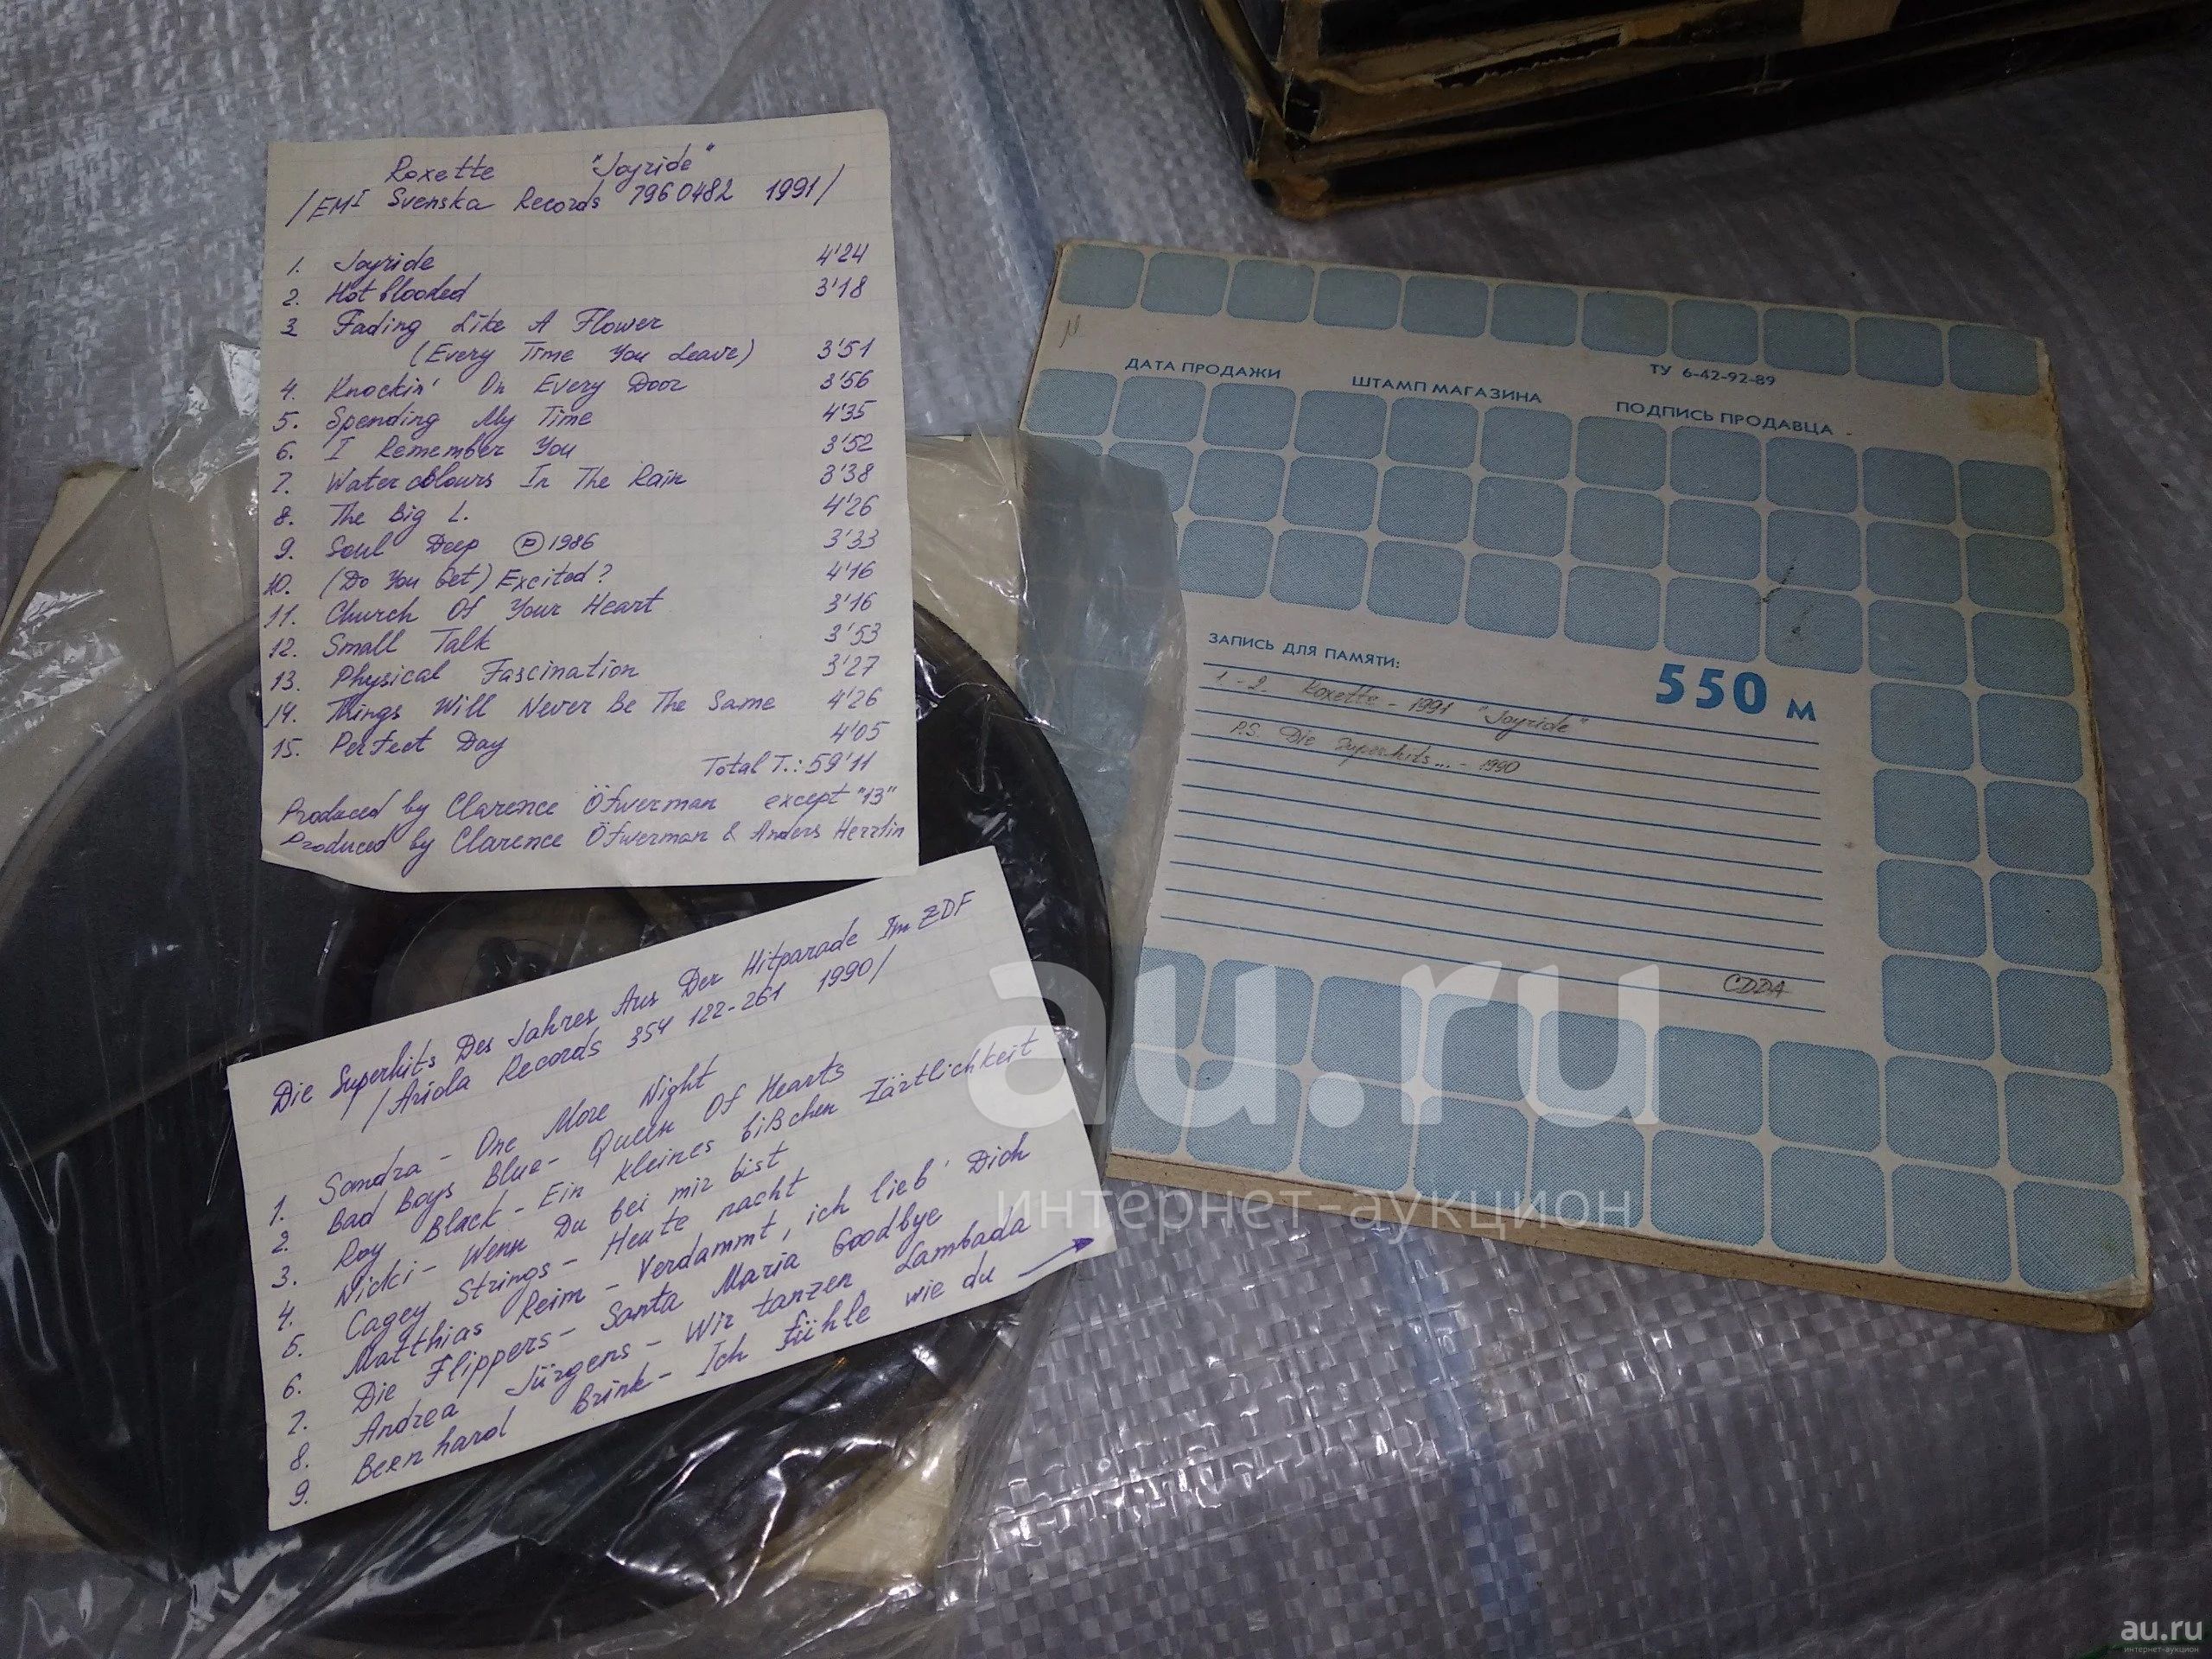 Roxette "Joyride"
/EMI Svenska Records 7960482 1991/
1. Joyride 4'24
2. Hot blooded 3'18
3 Fading Like A Flower
(Every Time You Leave) 3'51
4. Knockin' On Every Door 3'56
5. Spending My Time 4'35
6. I Remember You 3'52
7. Watercolours In The Rain 3'38
8. The Big L. 4'26
9. Soul Deep Ⓟ1986 3'33
10. (Do You Get) Excited? 4'16
11. Church Of Your Heart 3'16
12. Small Talk 3'53
13. Physical Fascination 3'27
14. Things Will Never Be The Same 4'26
15. Perfect Day 4'05
Total T.: 59'11
Produced by Clarence Öfwerman except "13"
Produced by Clarence Öfwerman & Anders Herrlin
Die Superhits Des Jahres Aus Der Hitparade Im ZDF
/Ariola Records 354 122-261 1990/
1. Sandra - One More Night
2. Bad Boys Blue - Queen Of Hearts
3. Roy Black - Ein kleines bißchen Zärtlichkeit
4. Nicki - Wenn Du bei mir bist
5. Cagey Strings - Heute nacht
6. Matthias Reim - Verdammt, ich lieb' Dich
7. Die Flippers - Santa Maria Goodbye
8. Andrea Jürgens - Wir tanzen Lambada
9. Bernhard Brink - Ich fühle wie du
ТУ 6-42-92-89
ДАТА ПРОДАЖИ ШТАМП МАГАЗИНА ПОДПИСЬ ПРОДАВЦА
ЗАПИСЬ ДЛЯ ПАМЯТИ:
550 м
1-2. Roxette - 1991 "Joyride"
P.S. Die Superhits... - 1990
CDDA
au.ru
интернет-аукцион
au.ru
интернет-аукцион